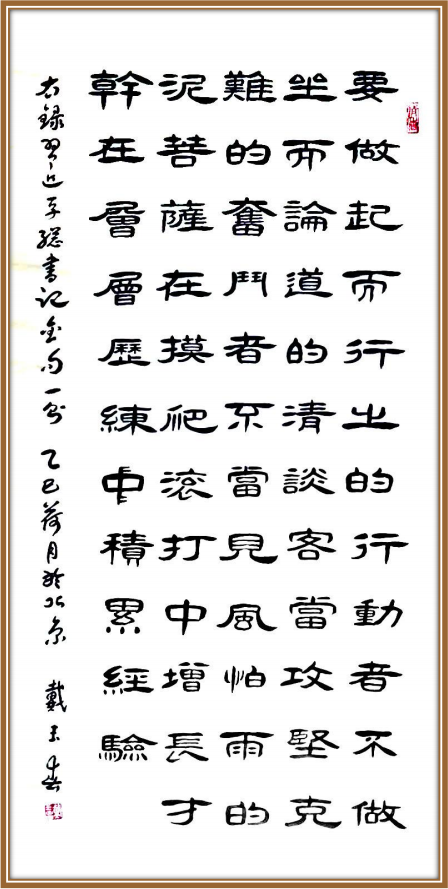 要做起而行之的行動者不做
坐而論道的清談客當攻堅克
難的奮鬥者不當見風怕雨的
泥菩薩在摸爬滾打中增長才
幹在層層歷練中積累經驗
右錄習近平總書記金句一則 乙巳荷月於北京 戴玉春